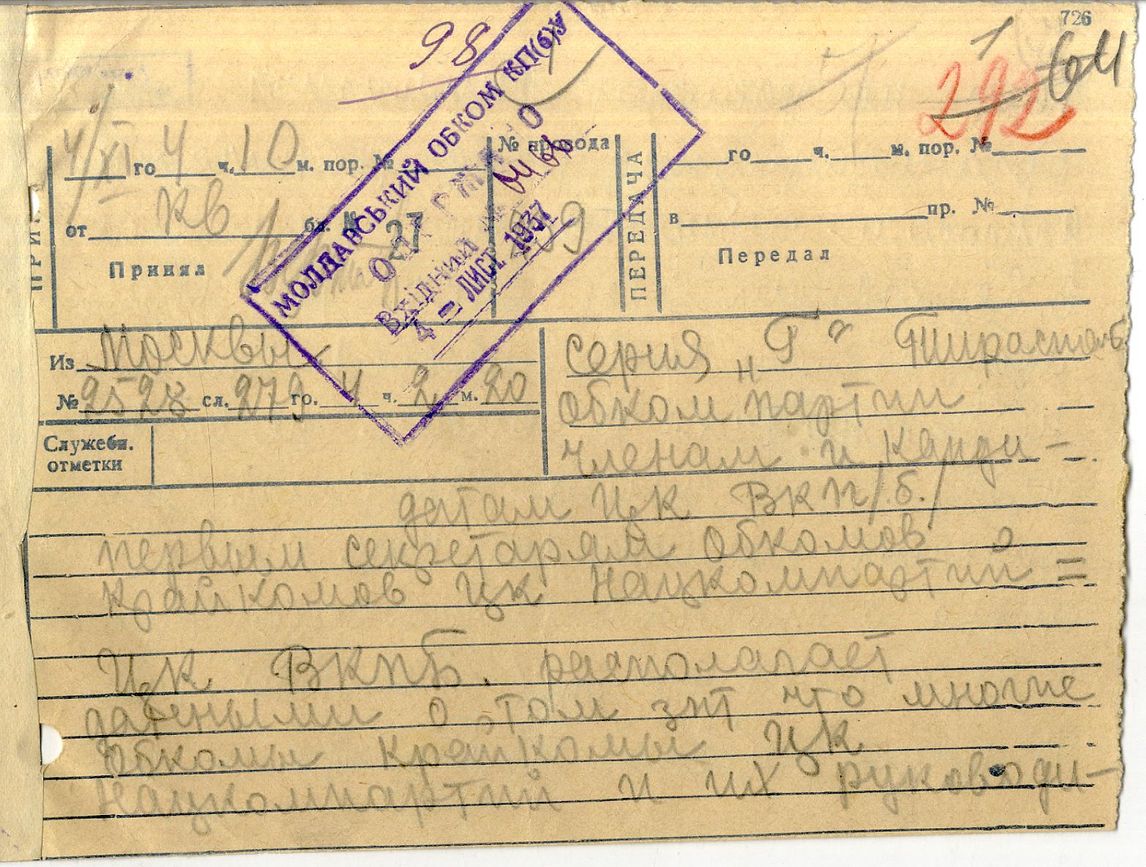 726
98
1
292
64
4/XI го 4 ч. 10 м. пор. №
№ провода
го ч. м. пор. №
от КВ бл. № 27
в пр. №
Принял
ПЕРЕДАЧА
Передал
МОЛДАВСЬКИЙ ОБКОМ КП(б)
Вхідний №
4 - ЛИСТ 1937
Из Москвы -
№ 2528 сл. 279 го. 4 ч. 2 м. 20
Служебн.
отметки
серия „Г“ Тирасполь
Обком партии -
членам и Канди-
датам ЦК ВКП/б/
первым секретарям Обкомов
крайкомов ЦК Нацкомпартий =
ЦК ВКПБ. располагает
данными о том зпт что многие
Обкомы Крайкомы ЦК
Нацкомпартий и их руководи-